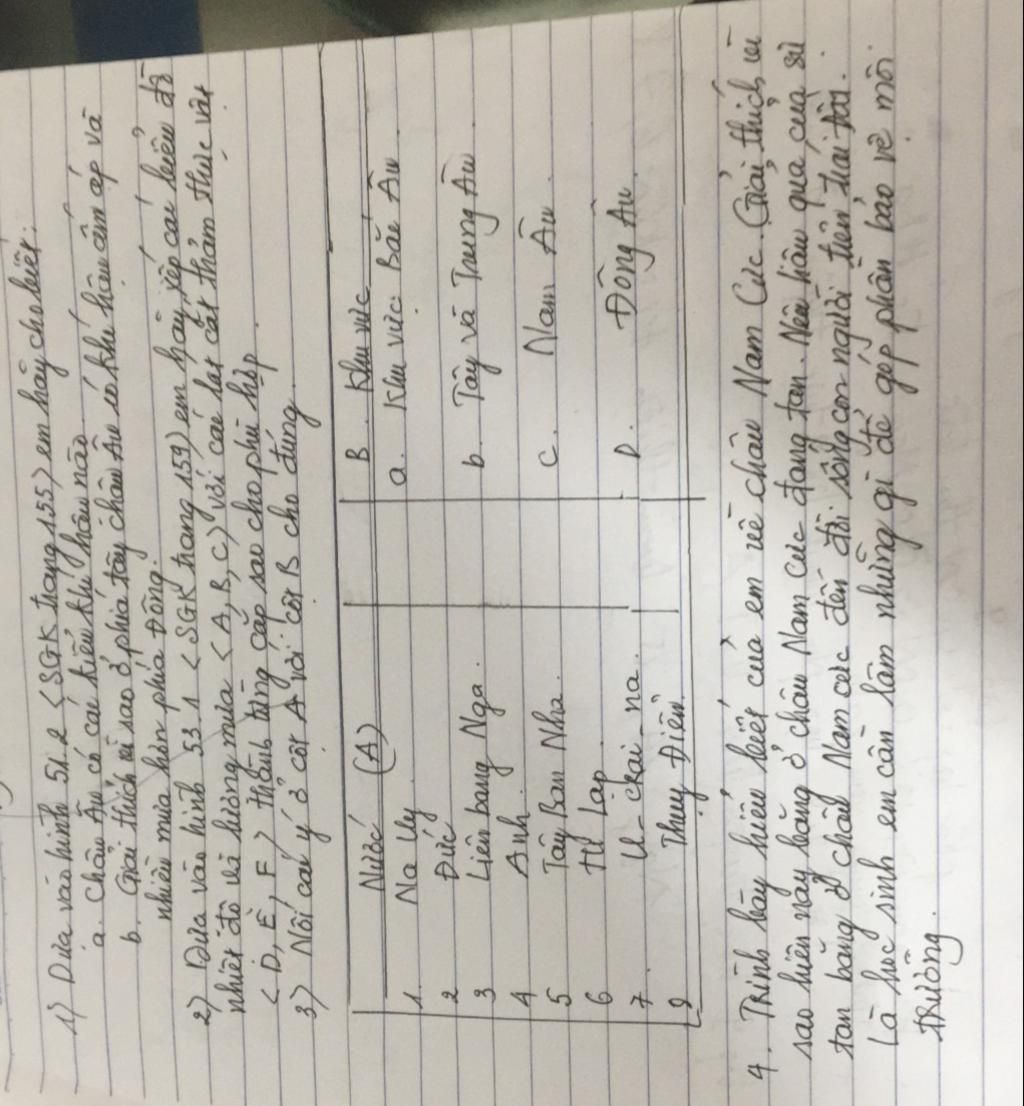 1) Dựa vào hình 51.2 <SGK trang 155> em hãy cho biết:
a. Châu Âu có các kiểu khí hậu nào.
b. Giải thích vì sao ở phía tây châu Âu có khí hậu ấm áp và
nhiều mưa hơn phía Đông.
2) Dựa vào hình 53.1 <SGK trang 159> em hãy xếp các biểu đồ
nhiệt độ và lượng mưa <A, B, C> với các lát cắt thảm thực vật
<D, E, F> thành từng cặp sao cho phù hợp.
3) Nối các ý ở cột A với cột B cho đúng
Nước (A) B. Khu vực
1. Na Uy a. Khu vực Bắc Âu
2 Đức
3 Liên bang Nga. b. Tây và Trung Âu
4 Anh.
5 Tây Ban Nha. c. Nam Âu.
6 Hi Lạp.
7 U-crai-na. D. Đông Âu.
8 Thụy Điển.
4. Trình bày hiểu biết của em về châu Nam Cực. Giải thích vì
sao hiện nay băng ở châu Nam cực đang tan. Nêu hậu quả của sự
tan băng ở châu Nam cực đến đời sống con người trên trái đất.
Là học sinh em cần làm những gì để góp phần bảo vệ môi
trường.